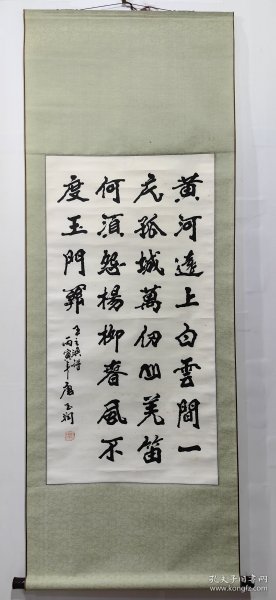 黄河遠上白雲間一
片孤城萬仞山羌笛
何須怨楊柳春風不
度玉門關
王之渙詩
丙寅年唐玉潤
孔夫子旧书网
www.kongfz.com